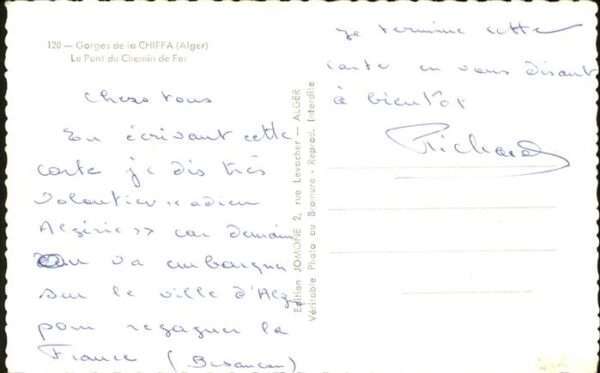 120 — Gorges de la CHIFFA (Alger)
Le Pont du Chemin de Fer
Chers tous
En écrivant cette
carte je dis très
volontier «adieu
Algérie» car demain
on va embarquer
sur le ville d'Alger
pour regagner la
France (Besancon)
Edition JOMONE 2, rue Levacher — ALGER
Véritable Photo au Bromure - Reprod. Interdite
je termine cette
carte en vous disant
à bientôt
Richard